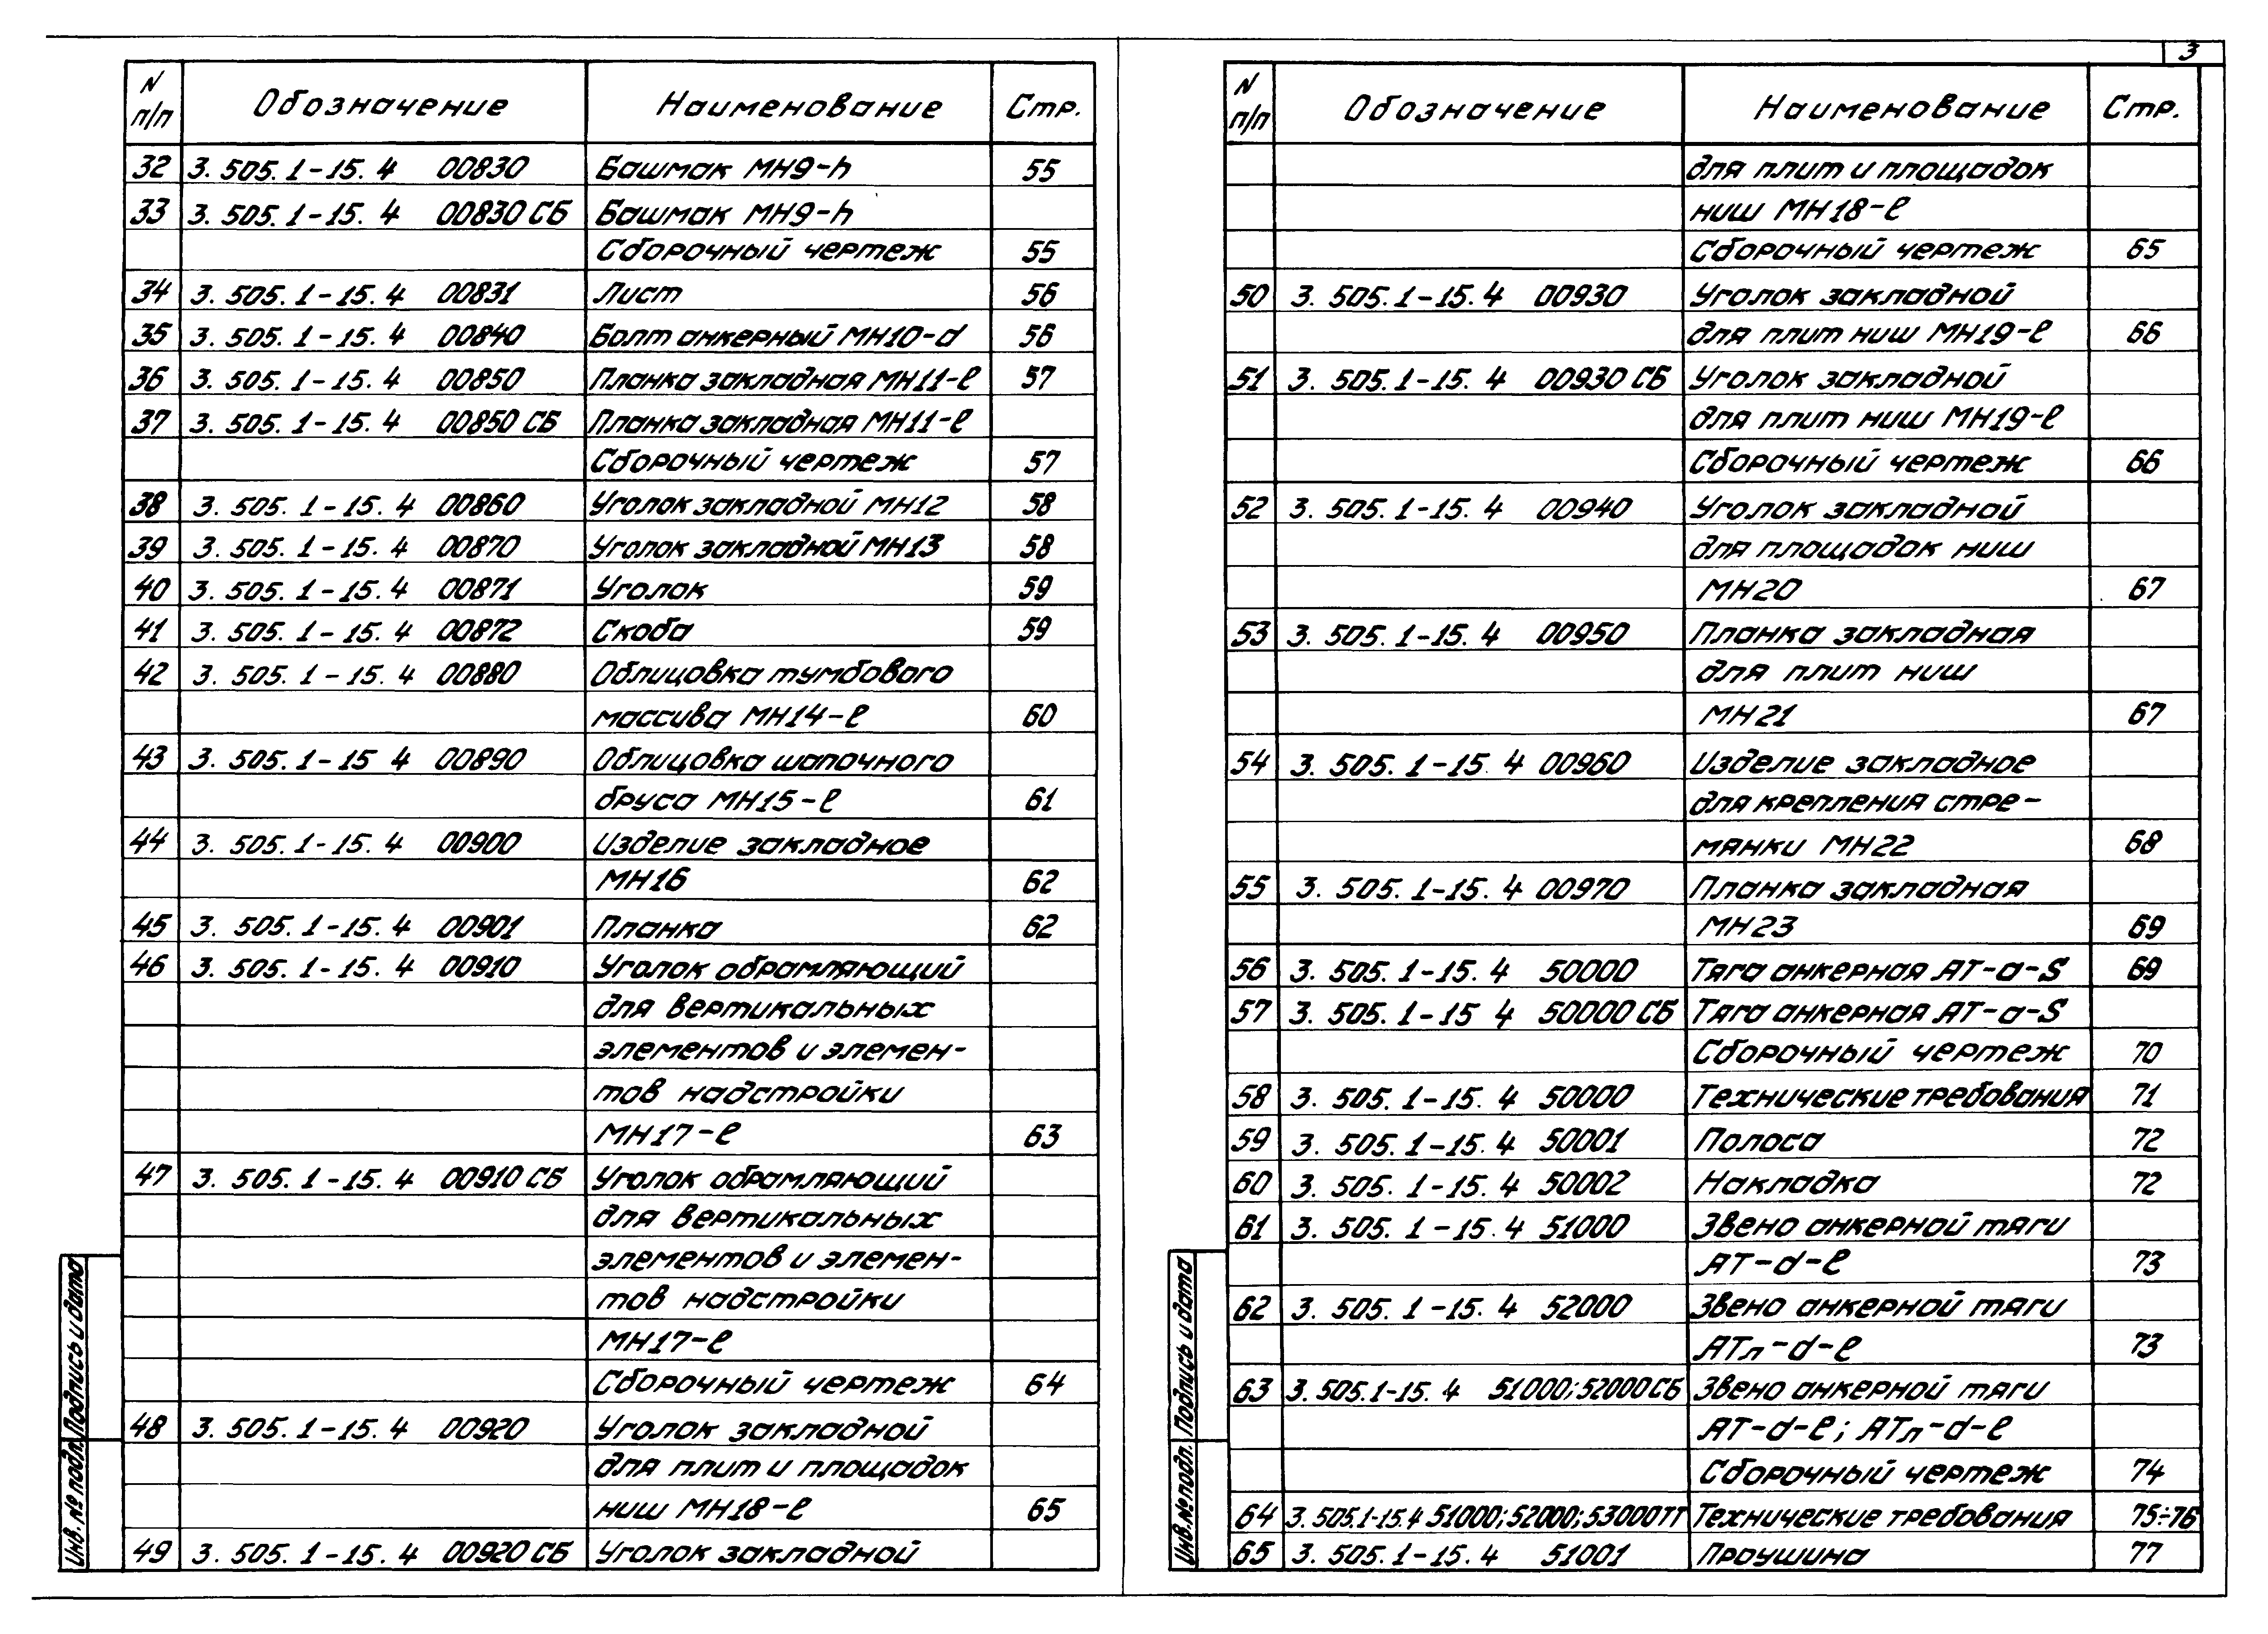 3
N п/п Обозначение Наименование Стр.
32 3.505.1-15.4 00830 Башмак МН9-h 55
33 3.505.1-15.4 00830 СБ Башмак МН9-h
Сборочный чертеж 55
34 3.505.1-15.4 00831 Лист 56
35 3.505.1-15.4 00840 Болт анкерный МН10-d 56
36 3.505.1-15.4 00850 Планка закладная МН11-ℓ 57
37 3.505.1-15.4 00850 СБ Планка закладная МН11-ℓ
Сборочный чертеж 57
38 3.505.1-15.4 00860 Уголок закладной МН12 58
39 3.505.1-15.4 00870 Уголок закладной МН13 58
40 3.505.1-15.4 00871 Уголок 59
41 3.505.1-15.4 00872 Скоба 59
42 3.505.1-15.4 00880 Облицовка тумбового
массива МН14-ℓ 60
43 3.505.1-15 4 00890 Облицовка шапочного
бруса МН15-ℓ 61
44 3.505.1-15.4 00900 Изделие закладное
МН16 62
45 3.505.1-15.4 00901 Планка 62
46 3.505.1-15.4 00910 Уголок обрамляющий
для вертикальных
элементов и элемен-
тов надстройки
МН17-ℓ 63
47 3.505.1-15.4 00910 СБ Уголок обрамляющий
для вертикальных
элементов и элемен-
тов надстройки
МН17-ℓ
Сборочный чертеж 64
48 3.505.1-15.4 00920 Уголок закладной
для плит и площадок
ниш МН18-ℓ 65
49 3.505.1-15.4 00920 СБ Уголок закладной
Инв. № подл. Подпись и дата
N п/п Обозначение Наименование Стр.
для плит и площадок
ниш МН18-ℓ
Сборочный чертеж 65
50 3.505.1-15.4 00930 Уголок закладной
для плит ниш МН19-ℓ 66
51 3.505.1-15.4 00930 СБ Уголок закладной
для плит ниш МН19-ℓ
Сборочный чертеж 66
52 3.505.1-15.4 00940 Уголок закладной
для площадок ниш
МН20 67
53 3.505.1-15.4 00950 Планка закладная
для плит ниш
МН21 67
54 3.505.1-15.4 00960 Изделие закладное
для крепления стре-
мянки МН22 68
55 3.505.1-15.4 00970 Планка закладная
МН23 69
56 3.505.1-15.4 50000 Тяга анкерная АТ-а-S 69
57 3.505.1-15 4 50000 СБ Тяга анкерная АТ-а-S
Сборочный чертеж 70
58 3.505.1-15.4 50000 Технические требования 71
59 3.505.1-15.4 50001 Полоса 72
60 3.505.1-15.4 50002 Накладка 72
61 3.505.1-15.4 51000 Звено анкерной тяги
АТ-d-ℓ 73
62 3.505.1-15.4 52000 Звено анкерной тяги
АТл-d-ℓ 73
63 3.505.1-15.4 51000;52000 СБ Звено анкерной тяги
АТ-d-ℓ; АТл-d-ℓ
Сборочный чертеж 74
64 3.505.1-15.4 51000;52000;53000ТТ Технические требования 75÷76
65 3.505.1-15.4 51001 Проушина 77
Инв. № подл. Подпись и дата